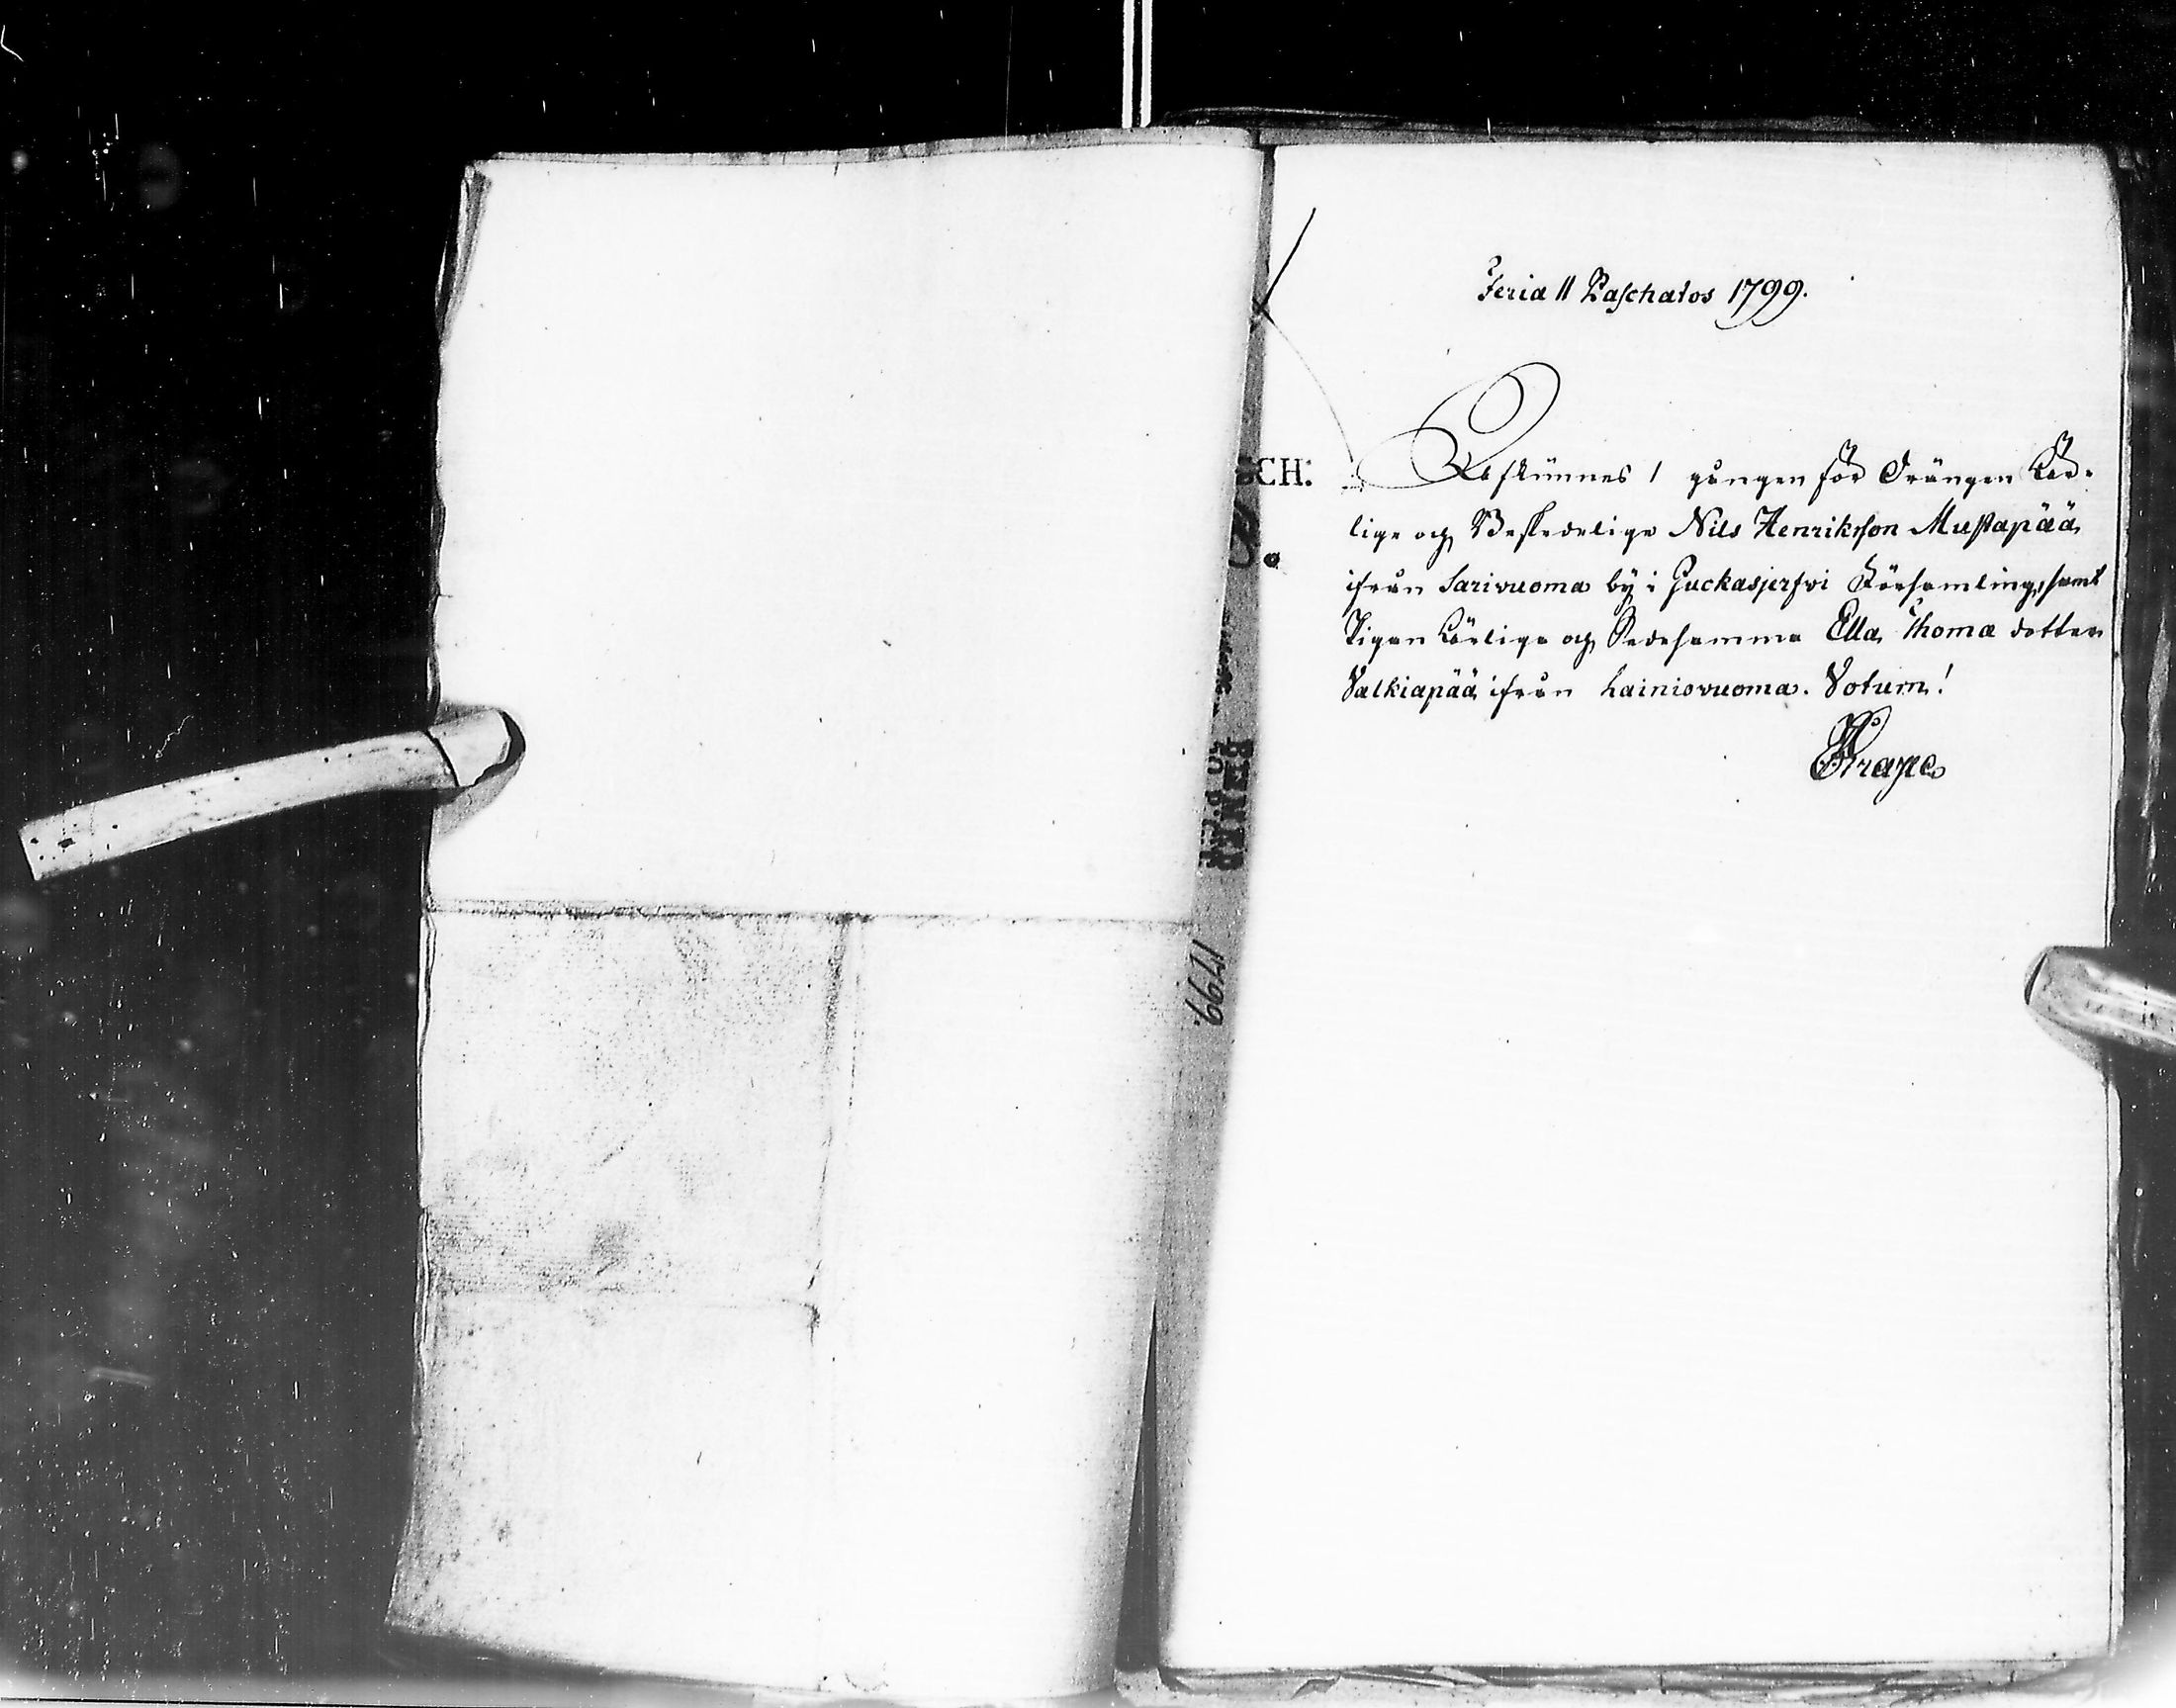 Feria II Paschatos 1799.
Afkunnes 1 gången för Drängen Här-
lige och Beskedelige Nils Henriksson Mustapää
ifrån Sarivuoma by i Juckasjerfvi Församling, samt
Pigan Ärlige och Sedesamma Ella Thoma dotter
Valkiapää ifrån Lainiovuoma. Votum!
CH:
1799.